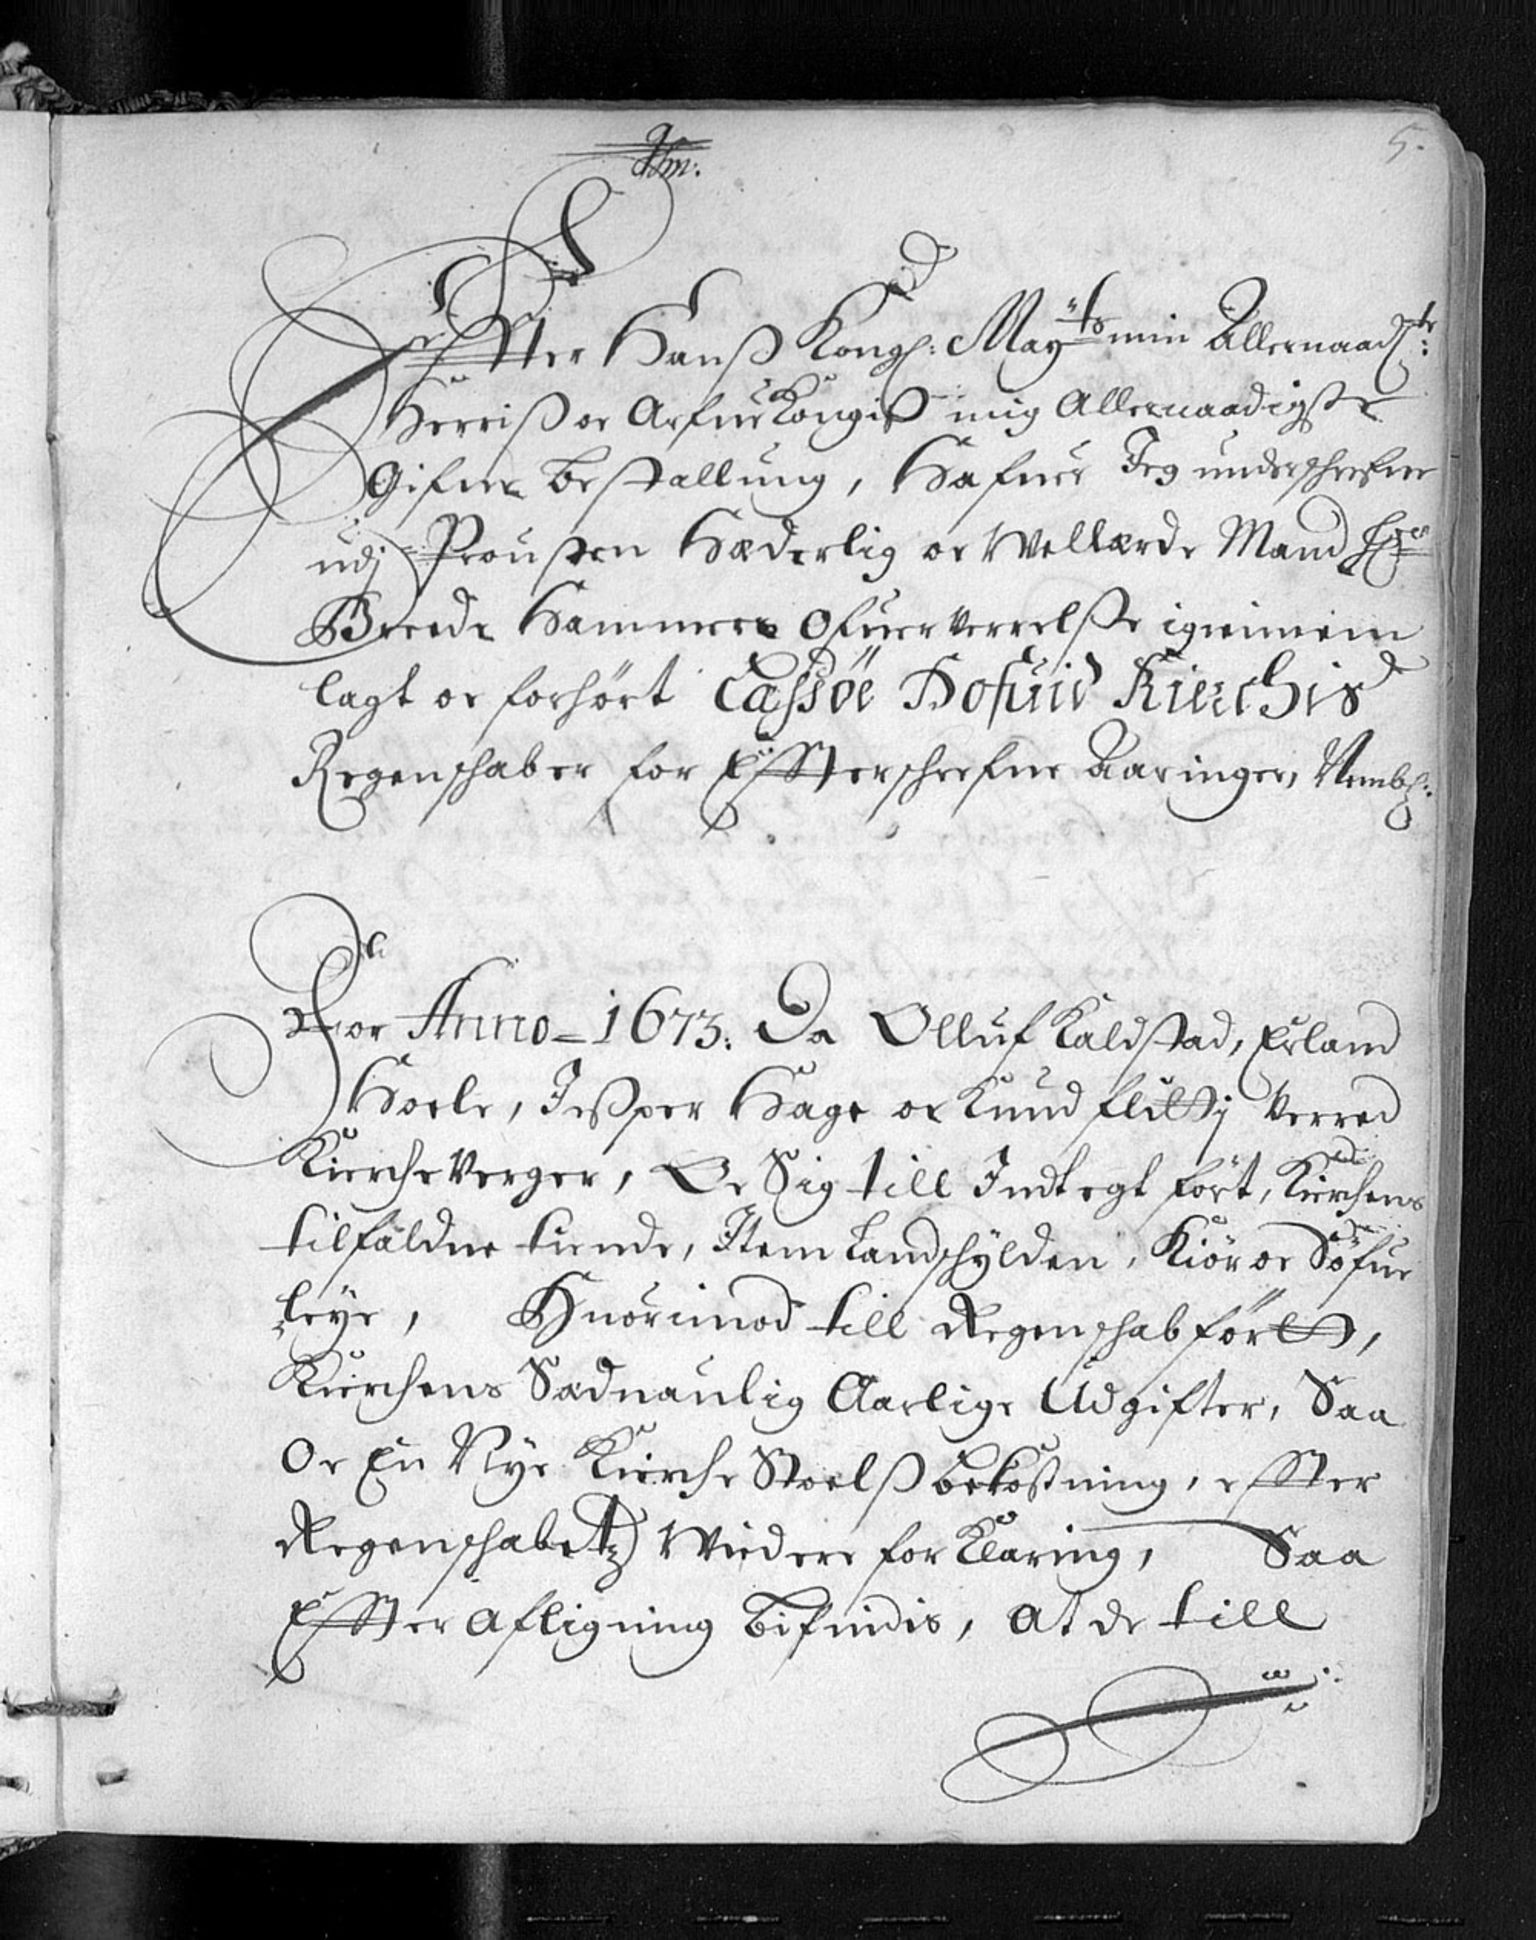 5.
Effter Hanß Kongl: May:ts min Allernaad:te
Herriß oc Arfue Kongis mig Allernaadigste
Gifne bestallung, Hafuer Jeg underschrefne
udj Prousten Hæderlig oc Wellærde Mand Hr
Brede Hammers Ofueruerrelße igiennem
lagt oc forhørt Cassøe Hofuid Kierchis
Regenschaber for Effterschrefne Aaringer, Nembl:
For Anno = 1673. Da Olluf Kaldstad, Erland
Hoele, Jesper Hage oc Knud flittj Verred
Kircheverger, Oc Sig till Indtegt ført, Kirchens
tilfaldne tiende, Item Landschylden, Kiør oc Søfue
leye, Huorimod till Regenschab førtt,
Kierchens Sædvanlig Aarlige Udgifter, Saa
Oc En Nye Kierche Stoelß bekostning, effter
Regenschabetz Widere forKlaring, Saa
Effter afligning bifindis, at de till